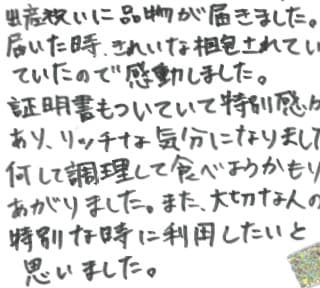 出産祝いに品物が届きました。
届いた時、きれいな梱包されてい
ていたので感動しました。
証明書もついていて特別感が
あり、リッチな気分になりまし
何して調理して食べようかもり
あがりました。また、大切な人の
特別な時に利用したいと
思いました。